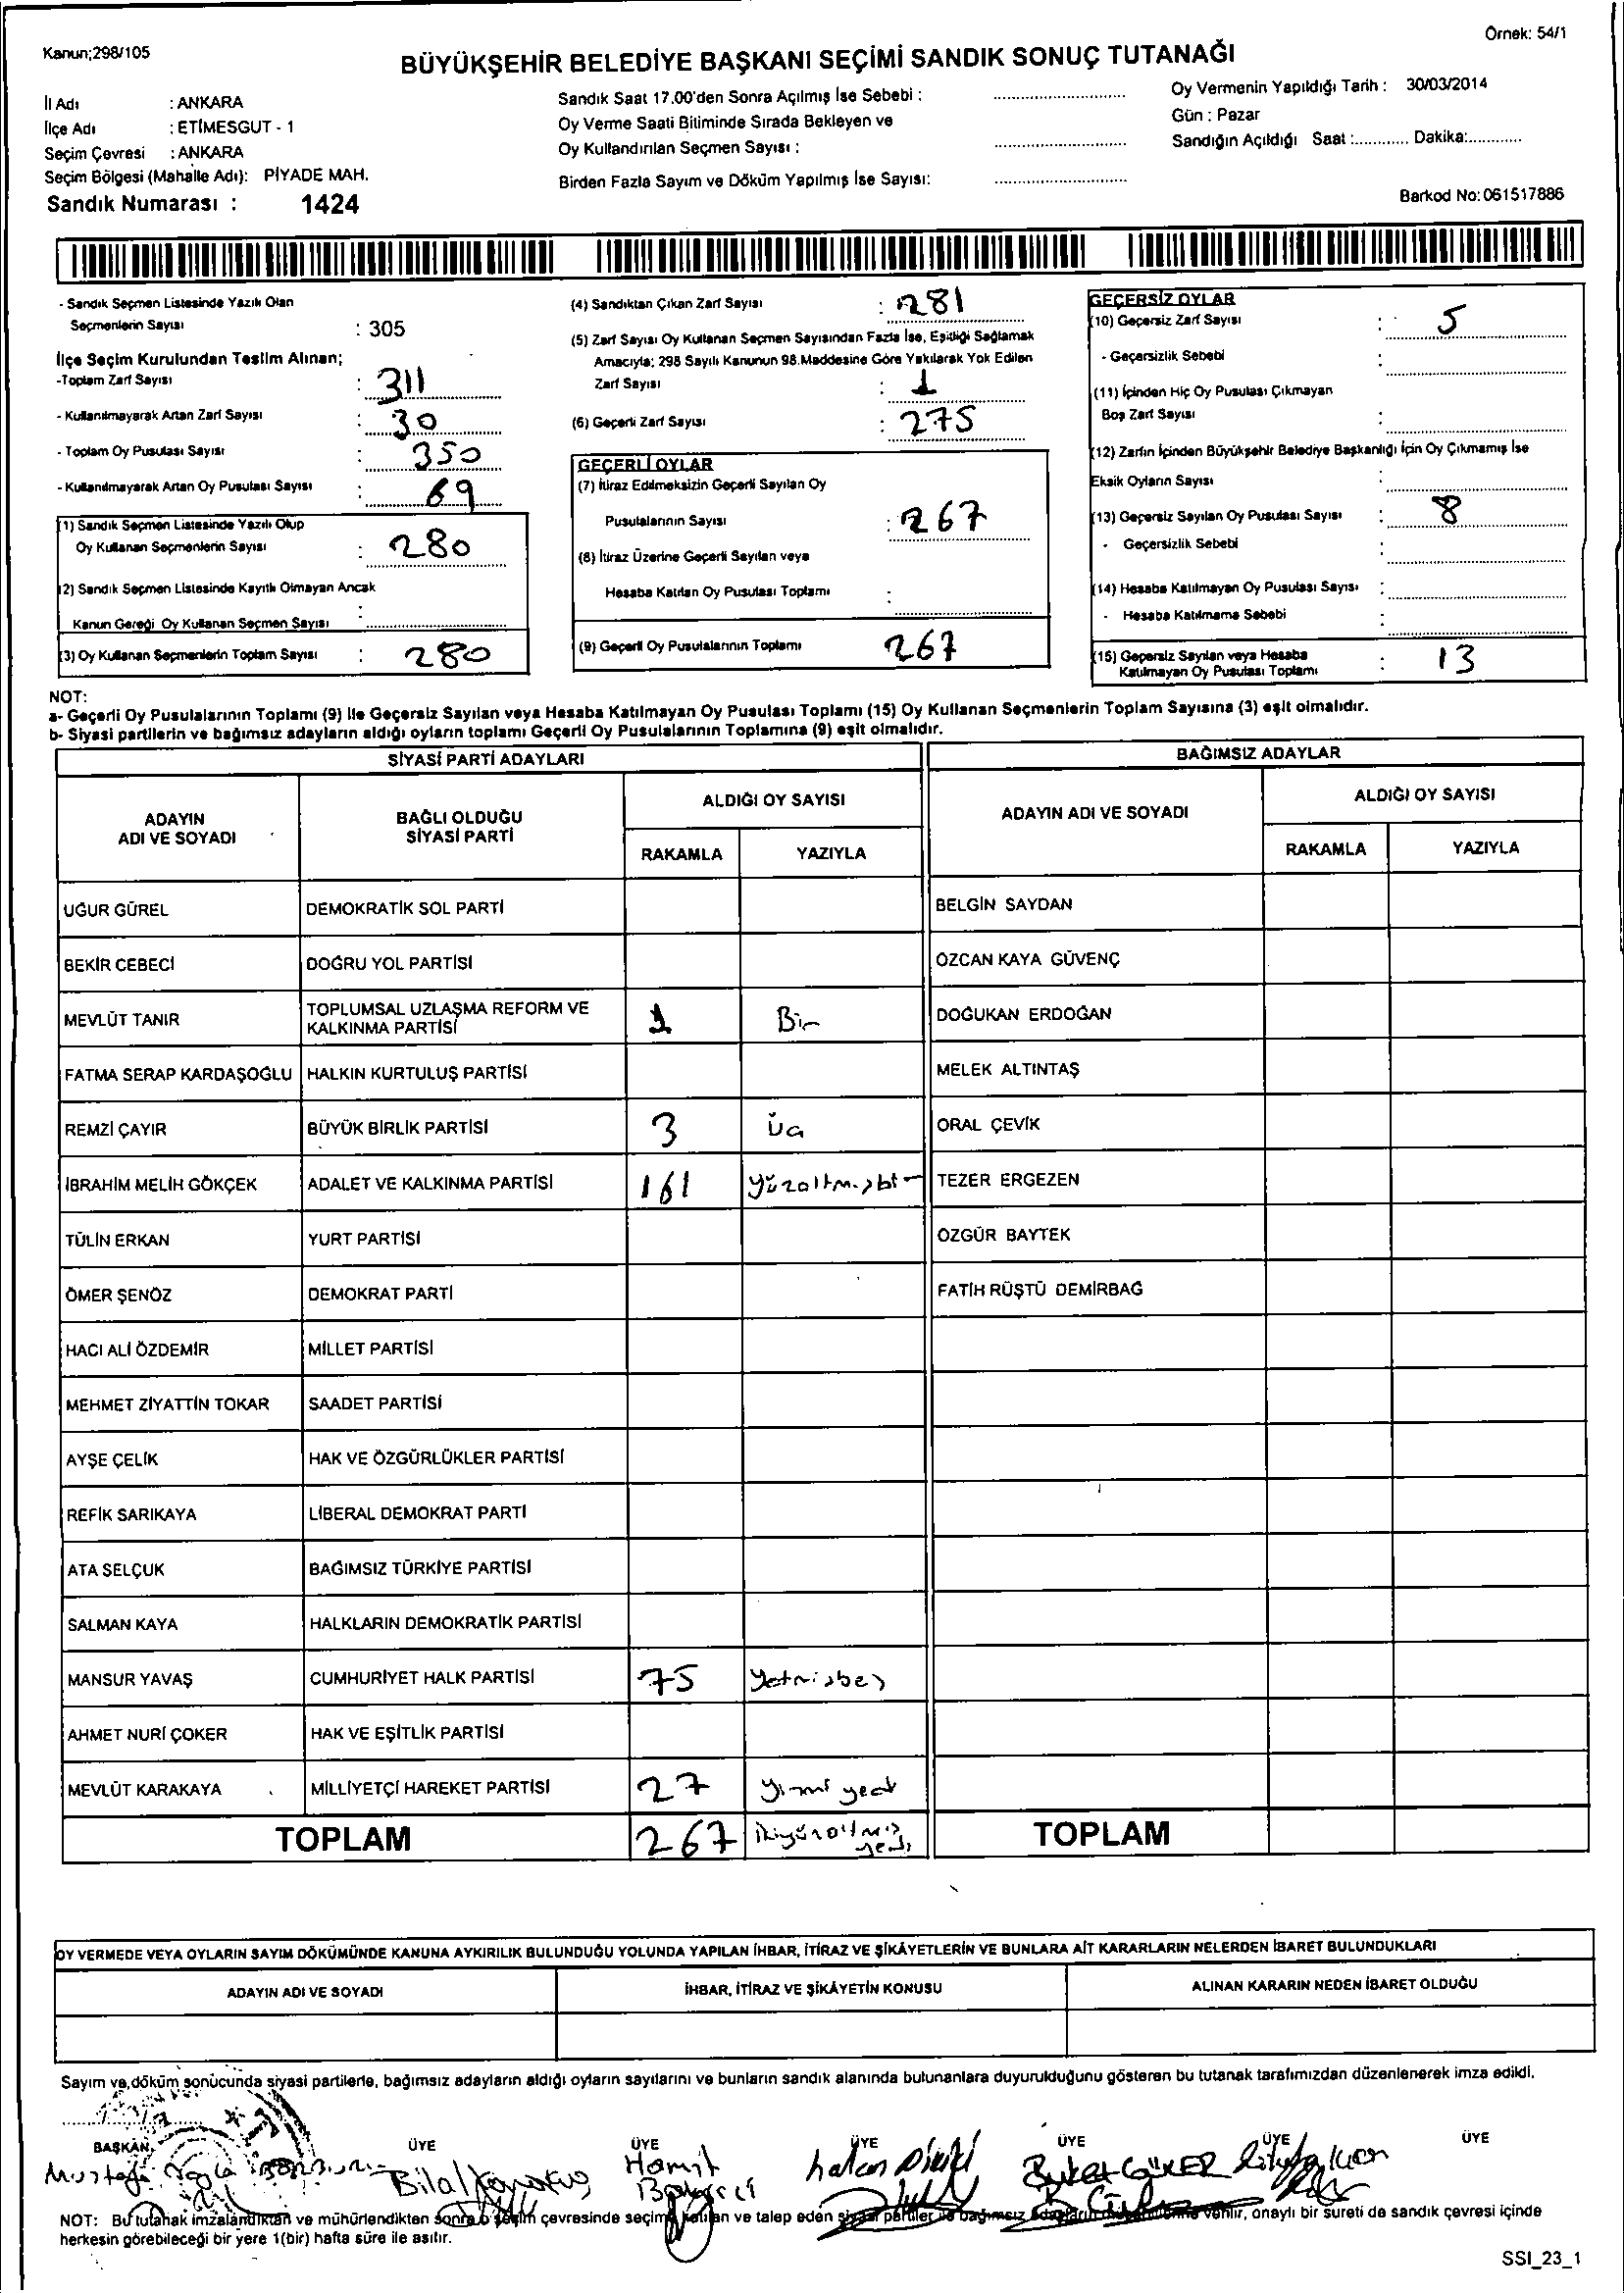 Kanun;298/105
Örnek: 54/1
BÜYÜKŞEHİR BELEDİYE BAŞKANI SEÇİMİ SANDIK SONUÇ TUTANAĞI
İl Adı : ANKARA
İlçe Adı : ETİMESGUT - 1
Seçim Çevresi : ANKARA
Seçim Bölgesi (Mahalle Adı): PİYADE MAH.
Sandık Numarası : 1424
Sandık Saat 17.00'den Sonra Açılmış İse Sebebi :
Oy Verme Saati Bitiminde Sırada Bekleyen ve
Oy Kullandırılan Seçmen Sayısı :
Birden Fazla Sayım ve Döküm Yapılmış İse Sayısı:
Oy Vermenin Yapıldığı Tarih : 30/03/2014
Gün : Pazar
Sandığın Açıldığı Saat :............ Dakika:............
Barkod No: 061517886
- Sandık Seçmen Listesinde Yazılı Olan
Seçmenlerin Sayısı : 305
İlçe Seçim Kurulundan Teslim Alınan;
-Toplam Zarf Sayısı : 311
- Kullanılmayarak Artan Zarf Sayısı : 30
- Toplam Oy Pusulası Sayısı : 350
- Kullanılmayarak Artan Oy Pusulası Sayısı : 69
(1) Sandık Seçmen Listesinde Yazılı Olup
Oy Kullanan Seçmenlerin Sayısı : 280
(2) Sandık Seçmen Listesinde Kayıtlı Olmayan Ancak
Kanun Gereği Oy Kullanan Seçmen Sayısı :
(3) Oy Kullanan Seçmenlerin Toplam Sayısı : 280
(4) Sandıktan Çıkan Zarf Sayısı : 281
(5) Zarf Sayısı Oy Kullanan Seçmen Sayısından Fazla İse, Eşitliği Sağlamak
Amacıyla; 298 Sayılı Kanunun 98.Maddesine Göre Yakılarak Yok Edilen
Zarf Sayısı : 1
(6) Geçerli Zarf Sayısı : 275
GEÇERLİ OYLAR
(7) İtiraz Edilmeksizin Geçerli Sayılan Oy
Pusulalarının Sayısı : 267
(8) İtiraz Üzerine Geçerli Sayılan veya
Hesaba Katılan Oy Pusulası Toplamı :
(9) Geçerli Oy Pusulalarının Toplamı 267
GEÇERSİZ OYLAR
(10) Geçersiz Zarf Sayısı : 5
- Geçersizlik Sebebi :
(11) İçinden Hiç Oy Pusulası Çıkmayan
Boş Zarf Sayısı :
(12) Zarfın İçinden Büyükşehir Belediye Başkanlığı İçin Oy Çıkmamış İse
Eksik Oyların Sayısı :
(13) Geçersiz Sayılan Oy Pusulası Sayısı : 8
- Geçersizlik Sebebi :
(14) Hesaba Katılmayan Oy Pusulası Sayısı :
- Hesaba Katılmama Sebebi :
(15) Geçersiz Sayılan veya Hesaba
Katılmayan Oy Pusulası Toplamı : 13
NOT:
a- Geçerli Oy Pusulalarının Toplamı (9) ile Geçersiz Sayılan veya Hesaba Katılmayan Oy Pusulası Toplamı (15) Oy Kullanan Seçmenlerin Toplam Sayısına (3) eşit olmalıdır.
b- Siyasi partilerin ve bağımsız adayların aldığı oyların toplamı Geçerli Oy Pusulalarının Toplamına (9) eşit olmalıdır.
SİYASİ PARTİ ADAYLARI
ADAYIN
ADI VE SOYADI
BAĞLI OLDUĞU
SİYASİ PARTİ
ALDIĞI OY SAYISI
RAKAMLA YAZIYLA
UĞUR GÜREL DEMOKRATİK SOL PARTİ
BEKİR CEBECİ DOĞRU YOL PARTİSİ
MEVLÜT TANIR TOPLUMSAL UZLAŞMA REFORM VE
KALKINMA PARTİSİ 1 Bir
FATMA SERAP KARDAŞOĞLU HALKIN KURTULUŞ PARTİSİ
REMZİ ÇAYIR BÜYÜK BİRLİK PARTİSİ 3 Üç
İBRAHİM MELİH GÖKÇEK ADALET VE KALKINMA PARTİSİ 161
TÜLİN ERKAN YURT PARTİSİ
ÖMER ŞENÖZ DEMOKRAT PARTİ
HACI ALİ ÖZDEMİR MİLLET PARTİSİ
MEHMET ZİYATTİN TOKAR SAADET PARTİSİ
AYŞE ÇELİK HAK VE ÖZGÜRLÜKLER PARTİSİ
REFİK SARIKAYA LİBERAL DEMOKRAT PARTİ
ATA SELÇUK BAĞIMSIZ TÜRKİYE PARTİSİ
SALMAN KAYA HALKLARIN DEMOKRATİK PARTİSİ
MANSUR YAVAŞ CUMHURİYET HALK PARTİSİ 75 Yetmişbeş
AHMET NURİ ÇOKER HAK VE EŞİTLİK PARTİSİ
MEVLÜT KARAKAYA MİLLİYETÇİ HAREKET PARTİSİ 27 yirmi yedi
TOPLAM 267 İkiyüzaltmış
yedi
BAĞIMSIZ ADAYLAR
ADAYIN ADI VE SOYADI
ALDIĞI OY SAYISI
RAKAMLA YAZIYLA
BELGİN SAYDAN
ÖZCAN KAYA GÜVENÇ
DOĞUKAN ERDOĞAN
MELEK ALTINTAŞ
ORAL ÇEVİK
TEZER ERGEZEN
ÖZGÜR BAYTEK
FATİH RÜŞTÜ DEMİRBAĞ
TOPLAM
OY VERMEDE VEYA OYLARIN SAYIM DÖKÜMÜNDE KANUNA AYKIRILIK BULUNDUĞU YOLUNDA YAPILAN İHBAR, İTİRAZ VE ŞİKÂYETLERİN VE BUNLARA AİT KARARLARIN NELERDEN İBARET BULUNDUKLARI
ADAYIN ADI VE SOYADI İHBAR, İTİRAZ VE ŞİKÂYETİN KONUSU ALINAN KARARIN NEDEN İBARET OLDUĞU
Sayım ve döküm sonucunda siyasi partilerle, bağımsız adayların aldığı oyların sayılarını ve bunların sandık alanında bulunanlara duyurulduğunu gösteren bu tutanak tarafımızdan düzenlenerek imza edildi.
BAŞKAN ÜYE ÜYE ÜYE ÜYE ÜYE ÜYE
Mustafa Bilal Hamit hakan Buket GÜLER
NOT: Bu tutanak imzalandıktan ve mühürlendikten sonra seçim çevresinde seçime katılan ve talep eden siyasi partiler ile bağımsız adayların verilir, onaylı bir sureti de sandık çevresi içinde
herkesin görebileceği bir yere 1(bir) hafta süre ile asılır.
SSI_23_1